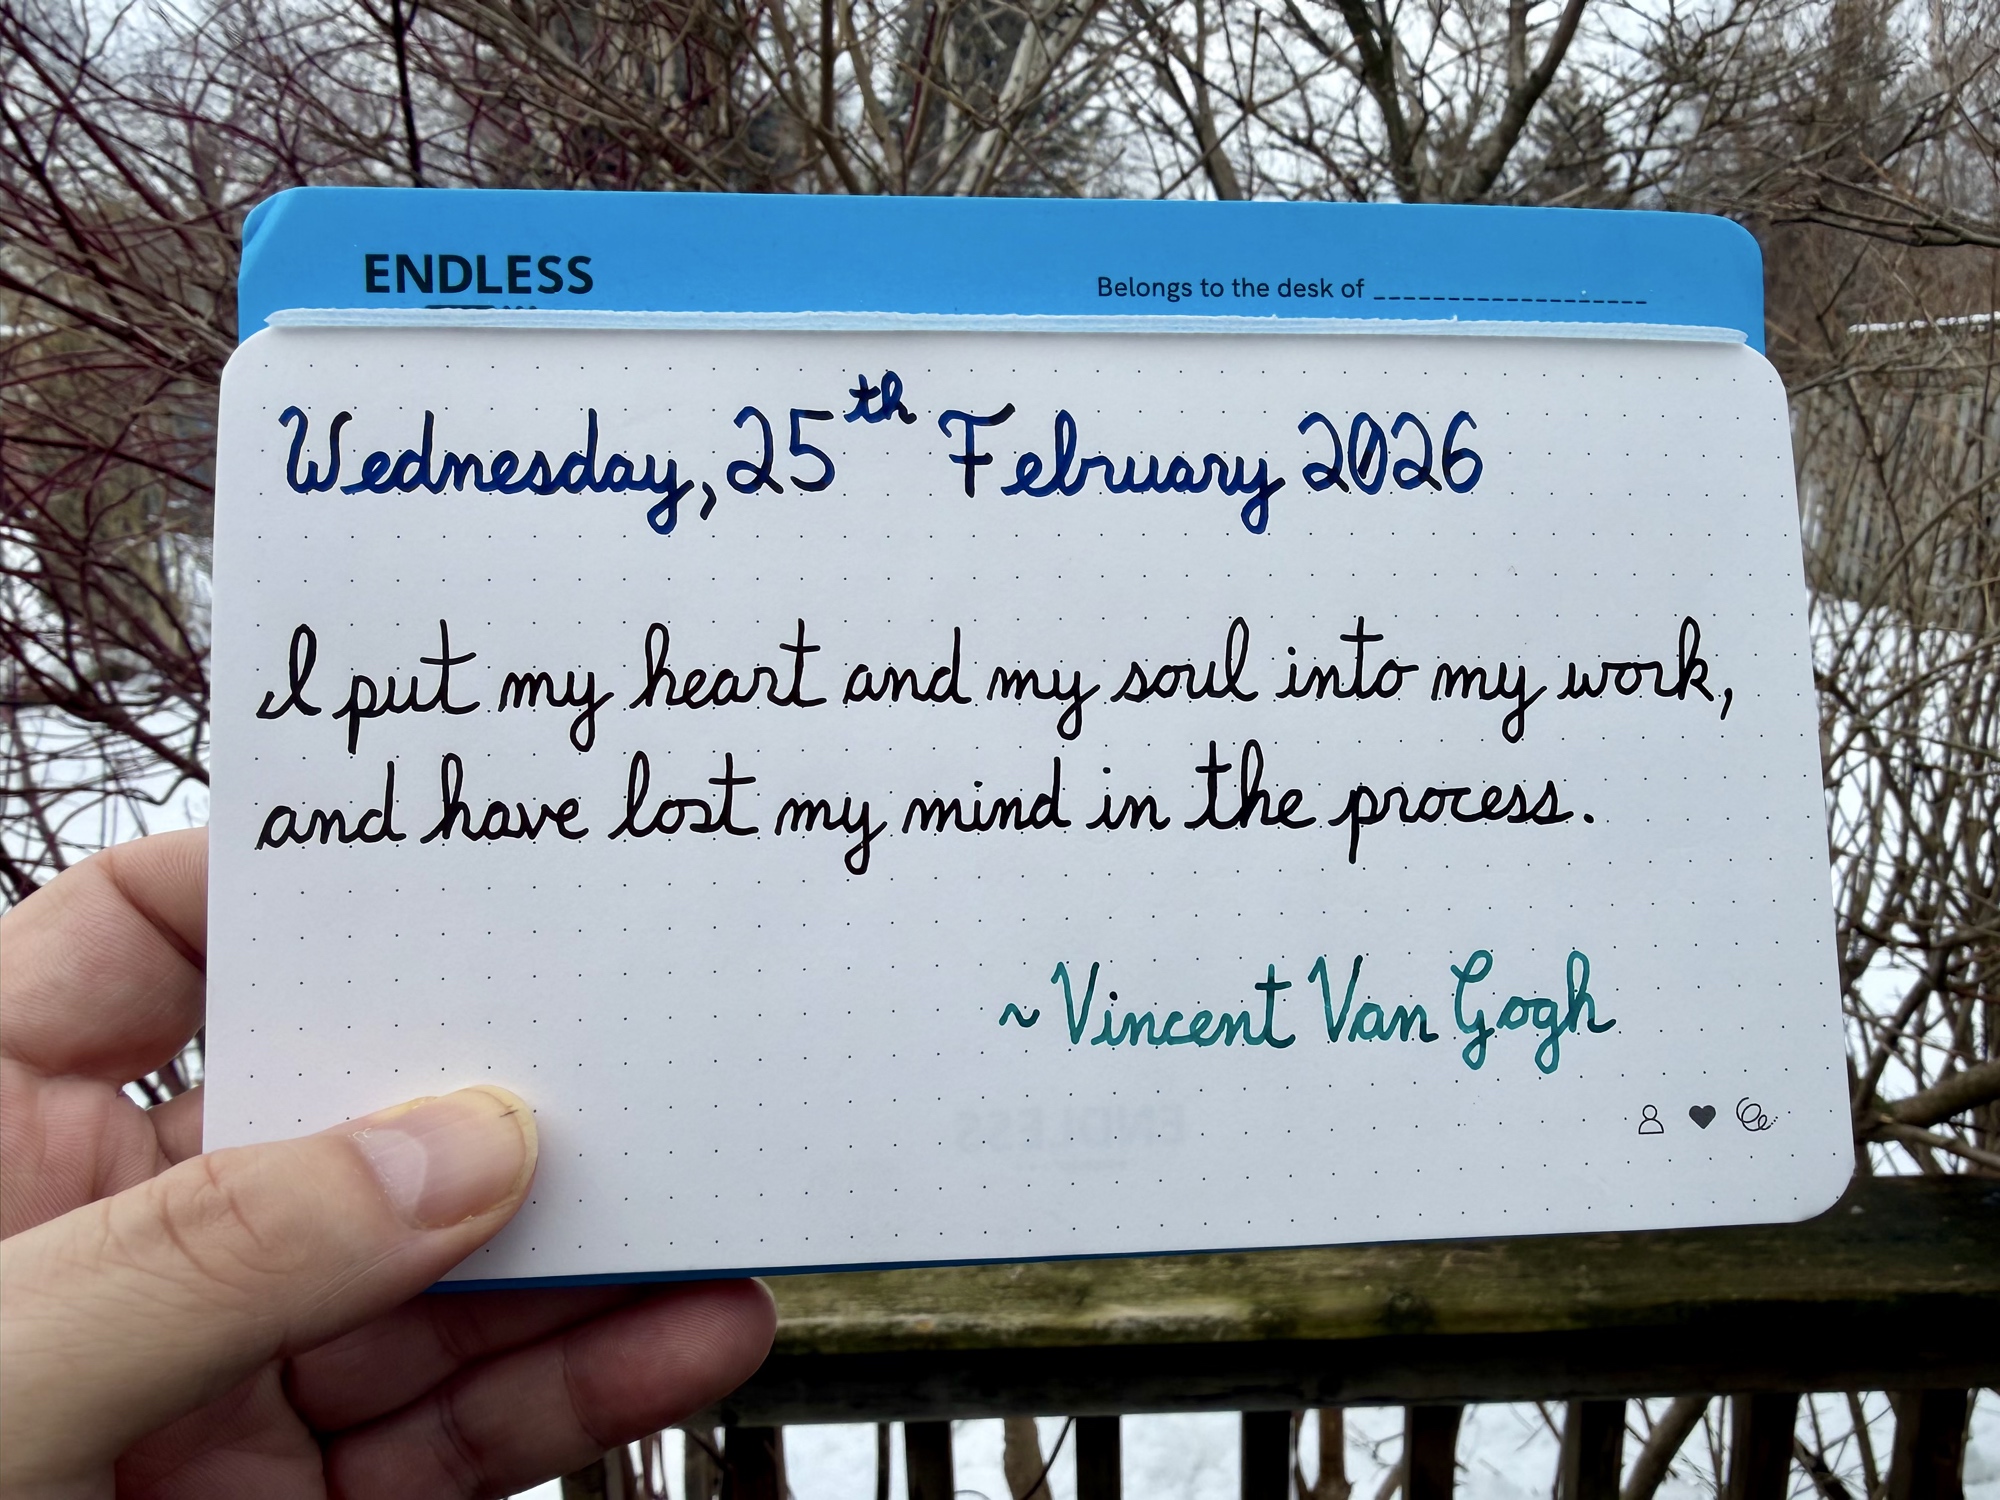 ENDLESS
Belongs to the desk of ___________________
Wednesday, 25th February 2026
I put my heart and my soul into my work,
and have lost my mind in the process.
~Vincent Van Gogh
ENDLESS